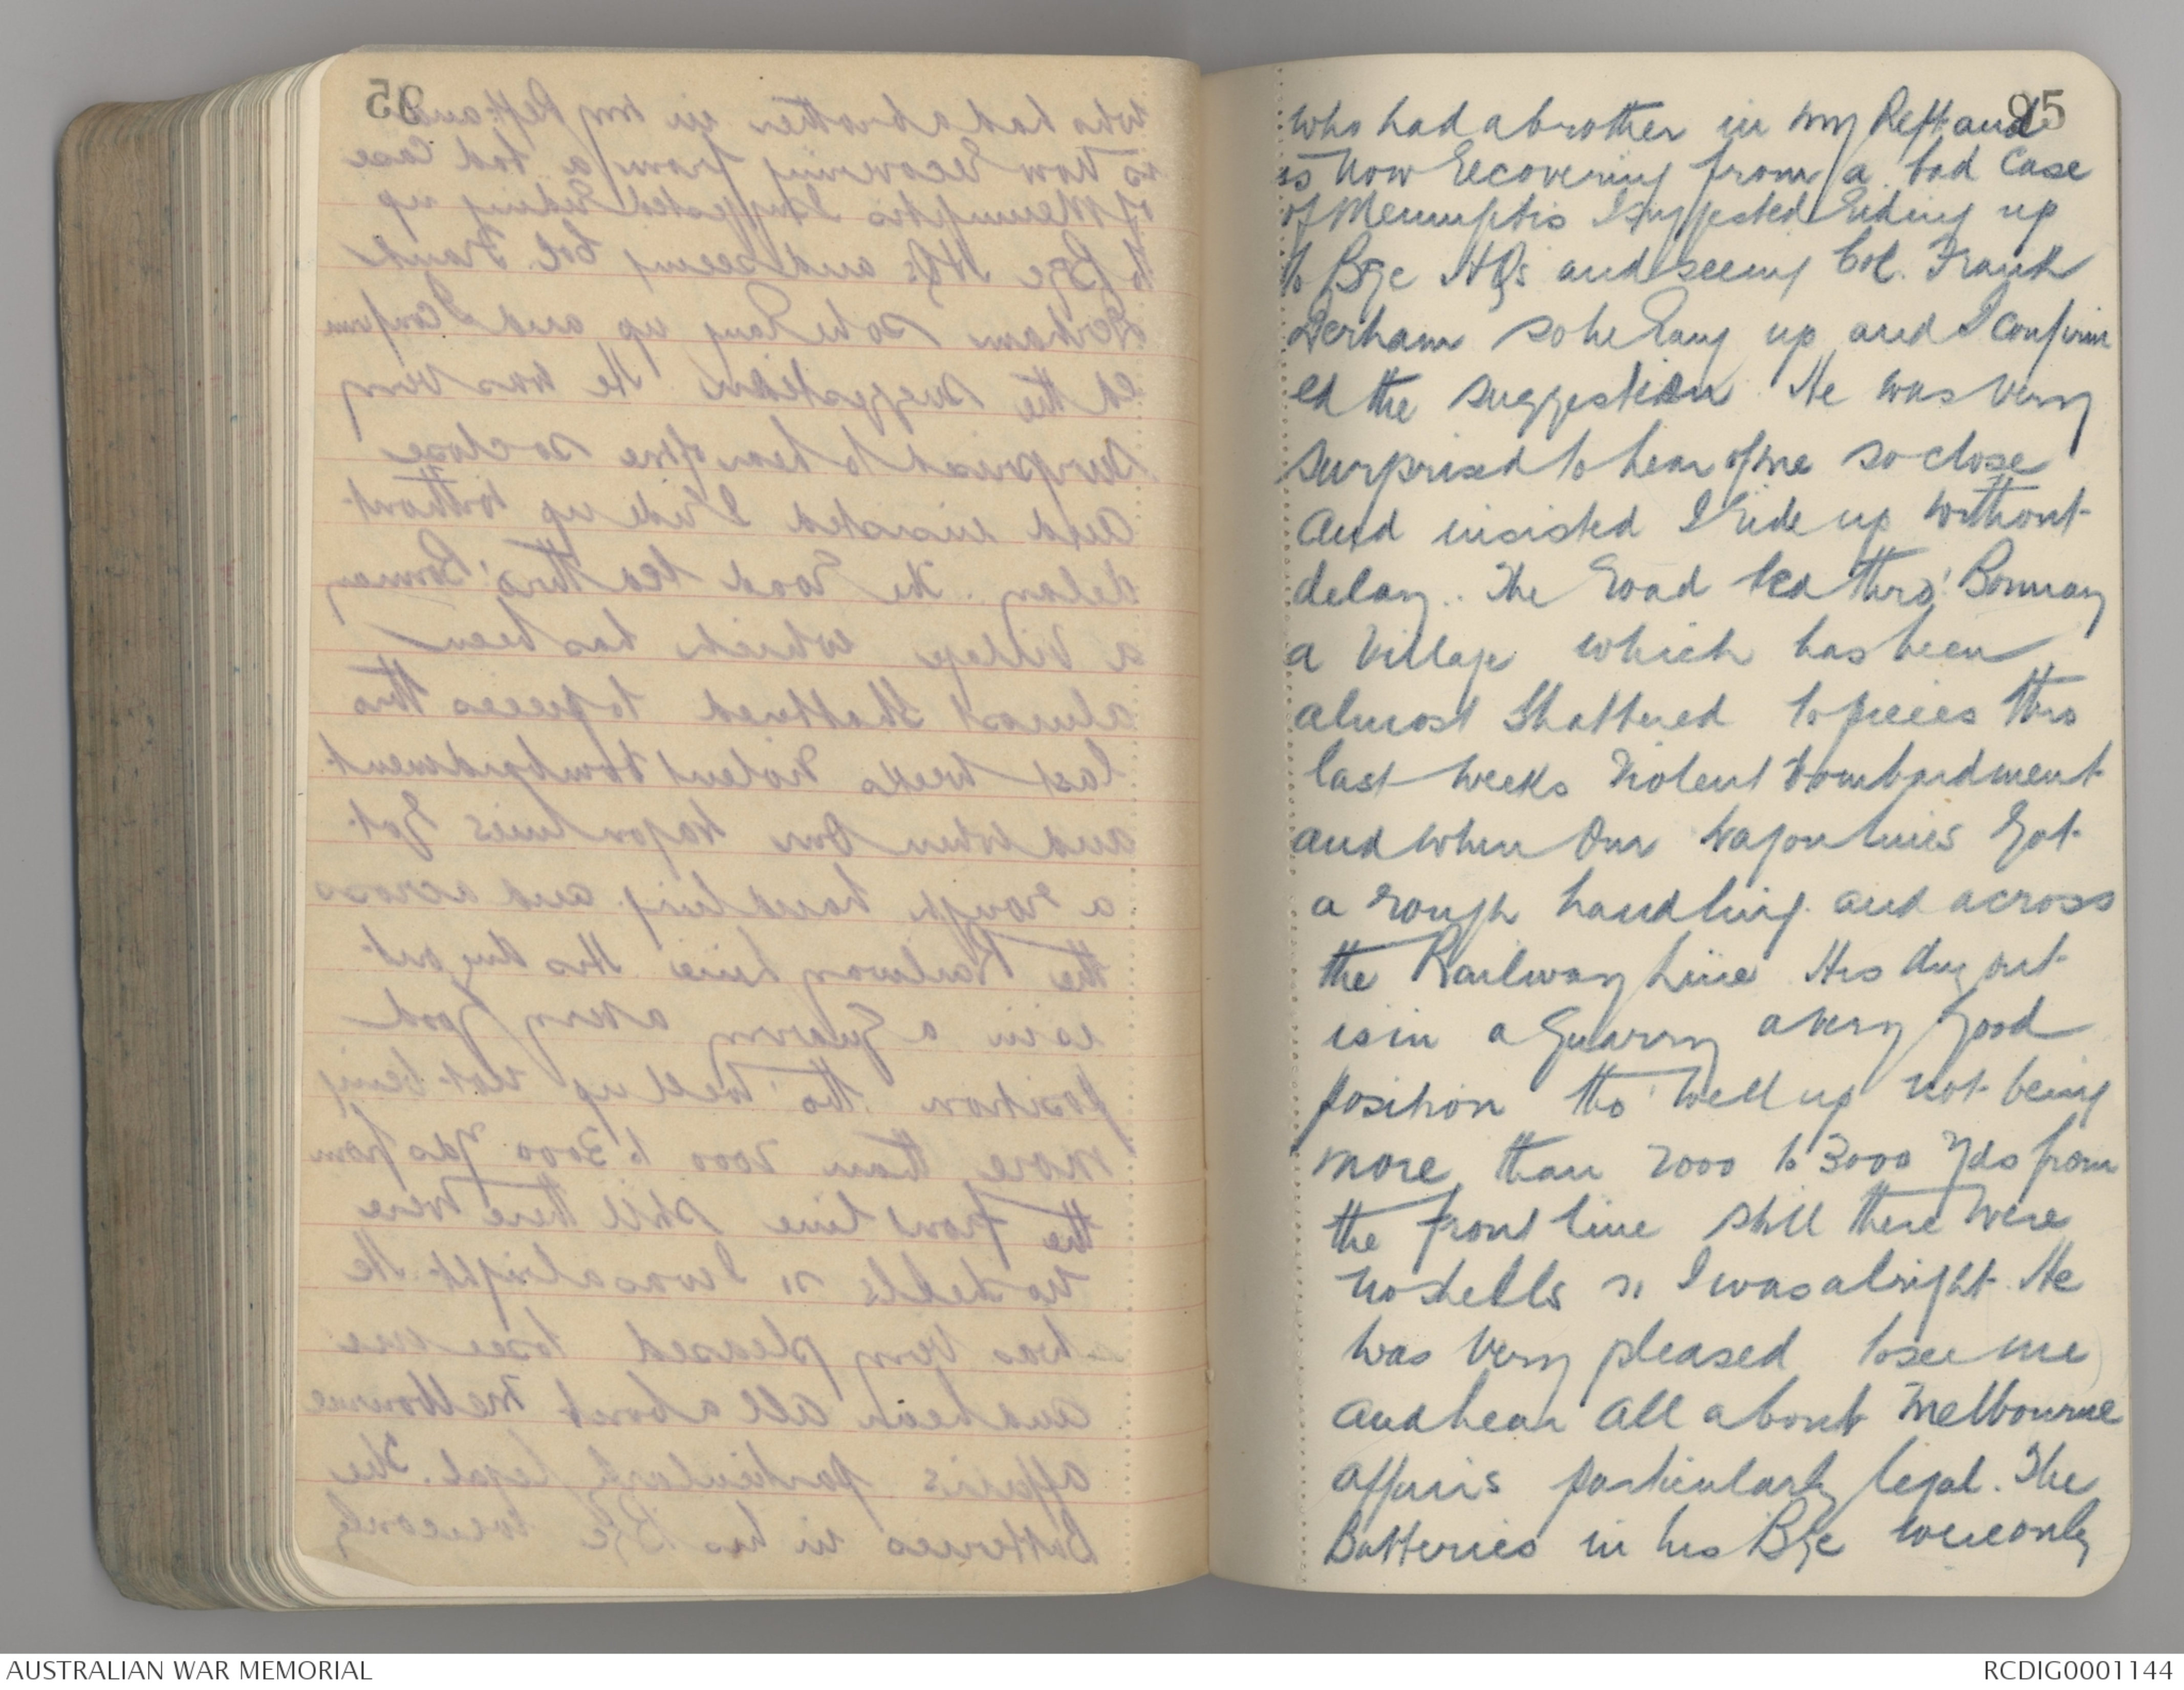 95
who had a brother in my Reft and
is now recovering from a bad case
of Meningitis I suggested riding up
to Bge HQs and seeing Col. Frank
Derham so he rang up and I confirm
ed the suggestion He was very
surprised to hear of me so close
and insisted I ride up without
delay. The road led thro' Bonnay
a village which has been
almost shattered to pieces this
last weeks violent bombardment
and when our wagon lines got
a rough handling and across
the Railway line His dug out
is in a Quarry a very good
position tho' well up not being
more than 2000 to 3000 yds from
the front line still there were
no shells so I was alright He
was very pleased to see me
and hear all about Melbourne
affairs particularly legal. The
Batteries in his Bge were only
AUSTRALIAN WAR MEMORIAL
RCDIG0001144